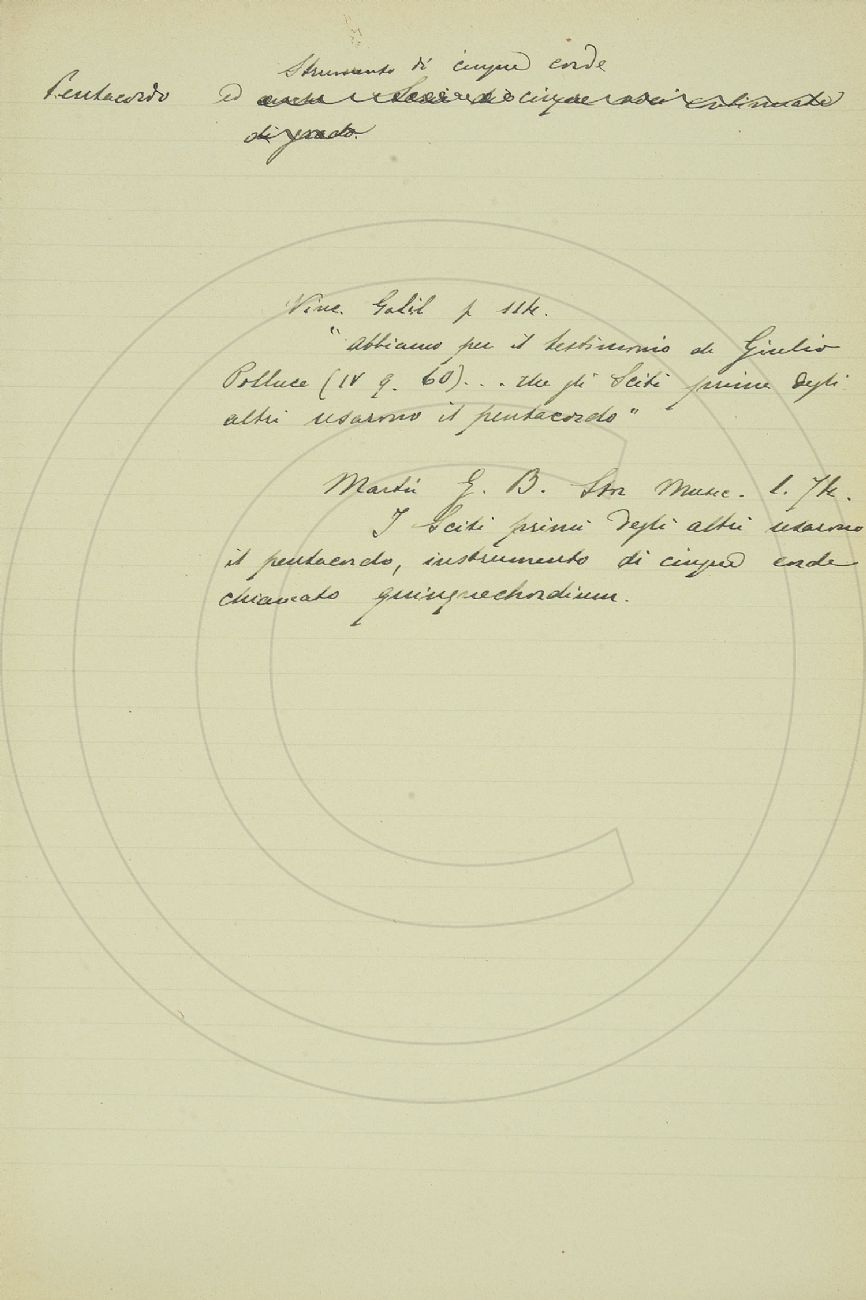 Strumento di cinque corde
Pentacordo ed anche Serie di cinque voci continuate
di grado.
Vinc. Galil p 114.
"Abbiamo per il testimonio di Giulio
Polluce (IV 9. 60)... che gli Sciti prima degli
altri usarono il pentacordo"
Martii G. B. Stor Music. 1. 74.
I Sciti primi degli altri usarono
il pentacordo, instrumento di cinque corde
chiamato quinquechordium.